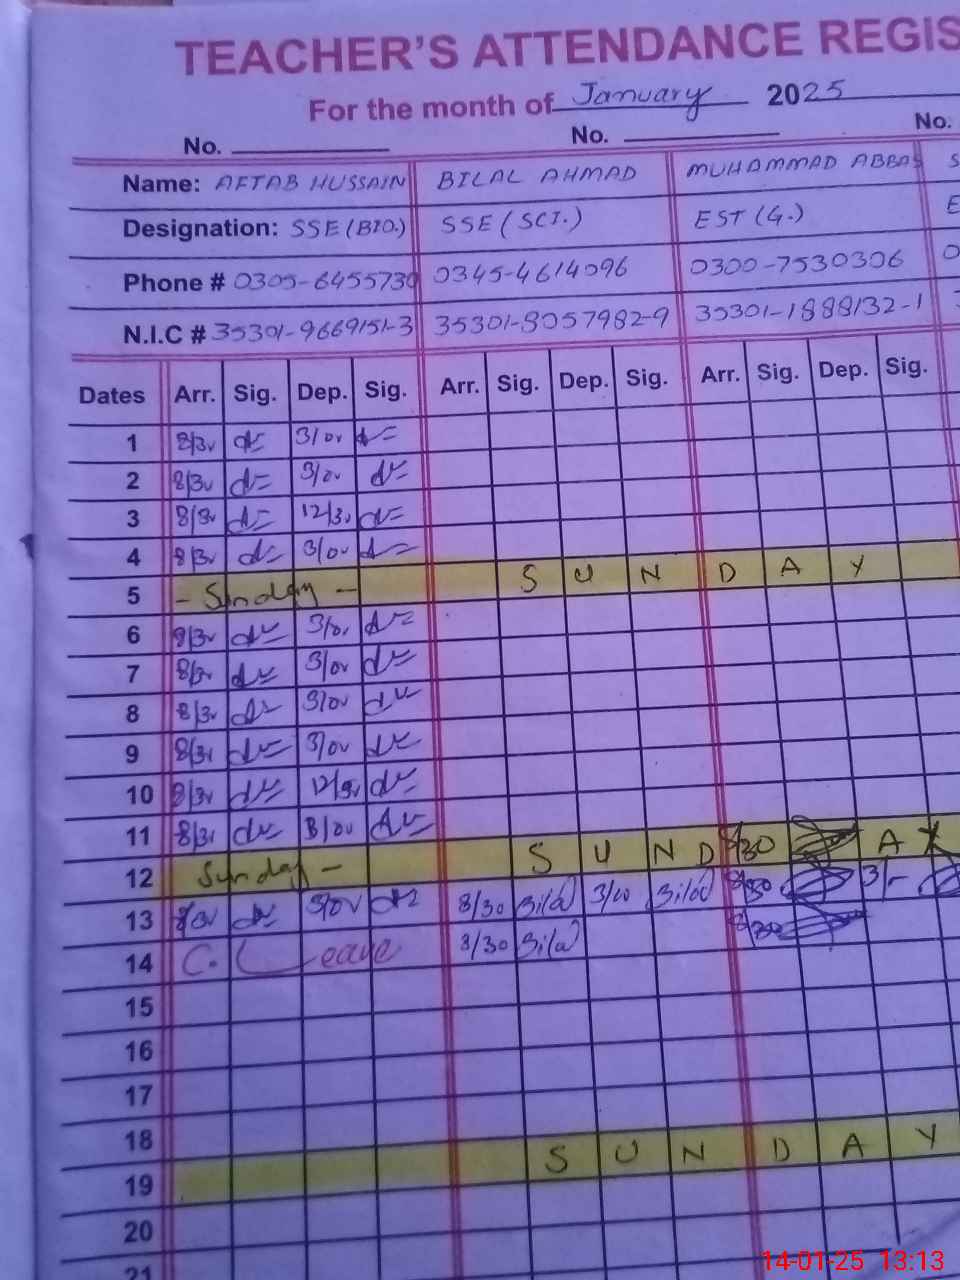 TEACHER'S ATTENDANCE REGIS
For the month of January 2025
No. No. No.
Name: AFTAB HUSSAIN BILAL AHMAD MUHAMMAD ABBAS S
Designation: SSE (BIO.) SSE (SCI.) EST (G.) E
Phone # 0305-6455730 0345-4614096 0300-7530306 0
N.I.C # 35301-9669151-3 35301-8057982-9 35301-1888132-1
Dates Arr. Sig. Dep. Sig. Arr. Sig. Dep. Sig. Arr. Sig. Dep. Sig.
1 8/30 3/00
2 8/30 3/00
3 8/30 12/30
4 8/30 3/00
5 - Sunday - S U N D A Y
6 8/30 3/00
7 8/30 3/00
8 8/30 3/00
9 8/30 3/00
10 8/30 12/30
11 8/30 3/00
12 Sunday - S U N D 8/30 A Y
13 8/30 3/00 8/30 Bilal 3/00 Bilal 8/30 3/-
14 C. Leave 8/30 Bilal 8/30
15
16
17
18
19 S U N D A Y
20
21
14-01-25 13:13